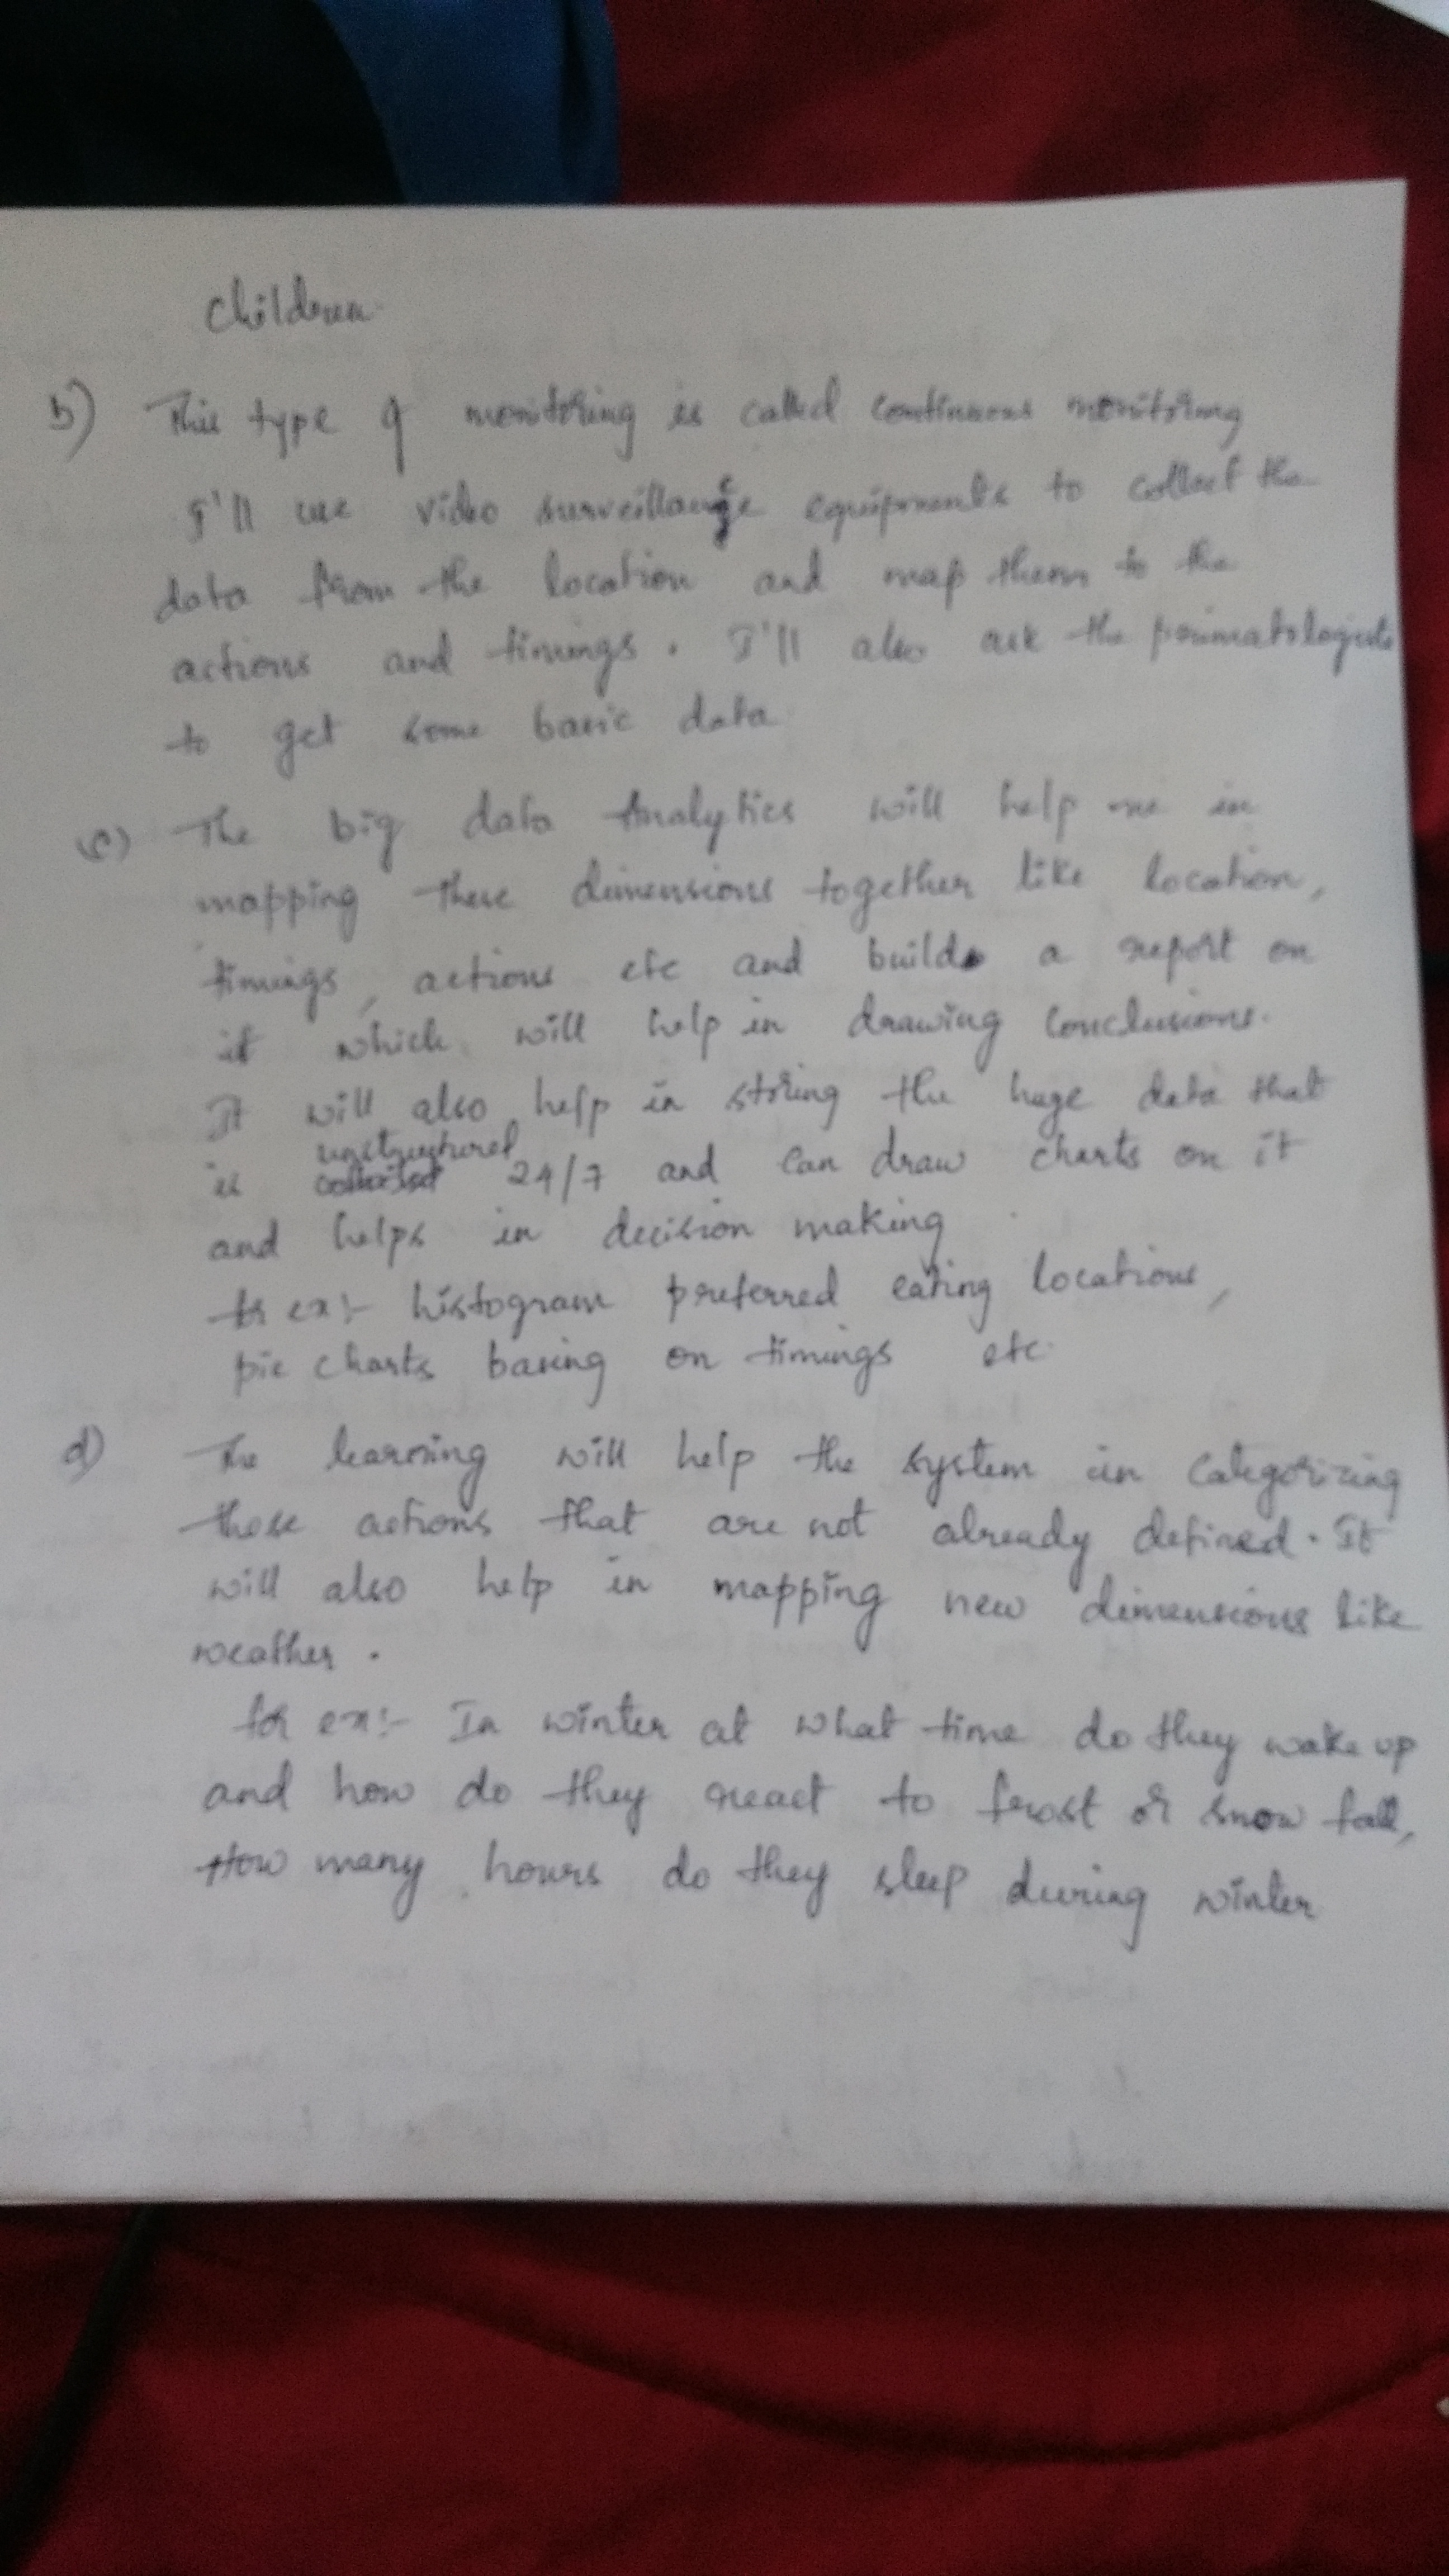 children.
b) This type of monitoring is called continuous monitoring
I'll use video surveillance equipments to collect the
data from the location and map them to the
actions and timings. I'll also ask the primatologists
to get some basic data
c) The big data Analytics will help me in
mapping these dimensions together like location,
timings, actions etc and build a report on
it which will help in drawing conclusions.
It will also help in storing the huge data that
unstructured
is collected 24/7 and can draw charts on it
and helps in decision making
for ex:- histogram preferred eating locations,
pie charts basing on timings etc.
d) The learning will help the system in categorizing
those actions that are not already defined. It
will also help in mapping new dimensions like
weather.
for ex:- In winter at what time do they wake up
and how do they react to frost or snow fall,
How many hours do they sleep during winter